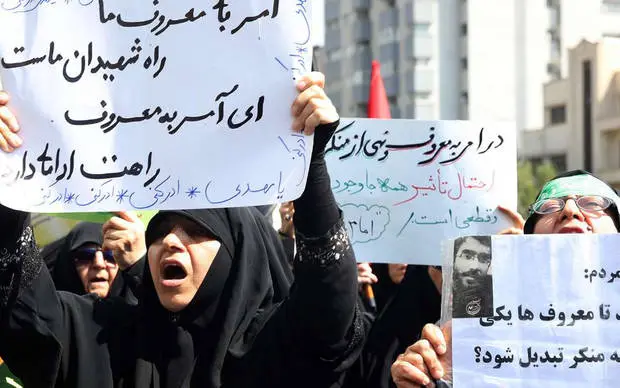 امر با معروف ما
راه شهیدان ماست
ای آمر به معروف
راهت ادامه دارد
یا مهدی * ادرکنی * ادرکنی * ادرکنی
در امر به معروف و نهی از منکر
احتمال تأثیر همه جا وجود
و قطعی است.
مردم:
تا معروف ها یکی
ه منکر تبدیل شود؟